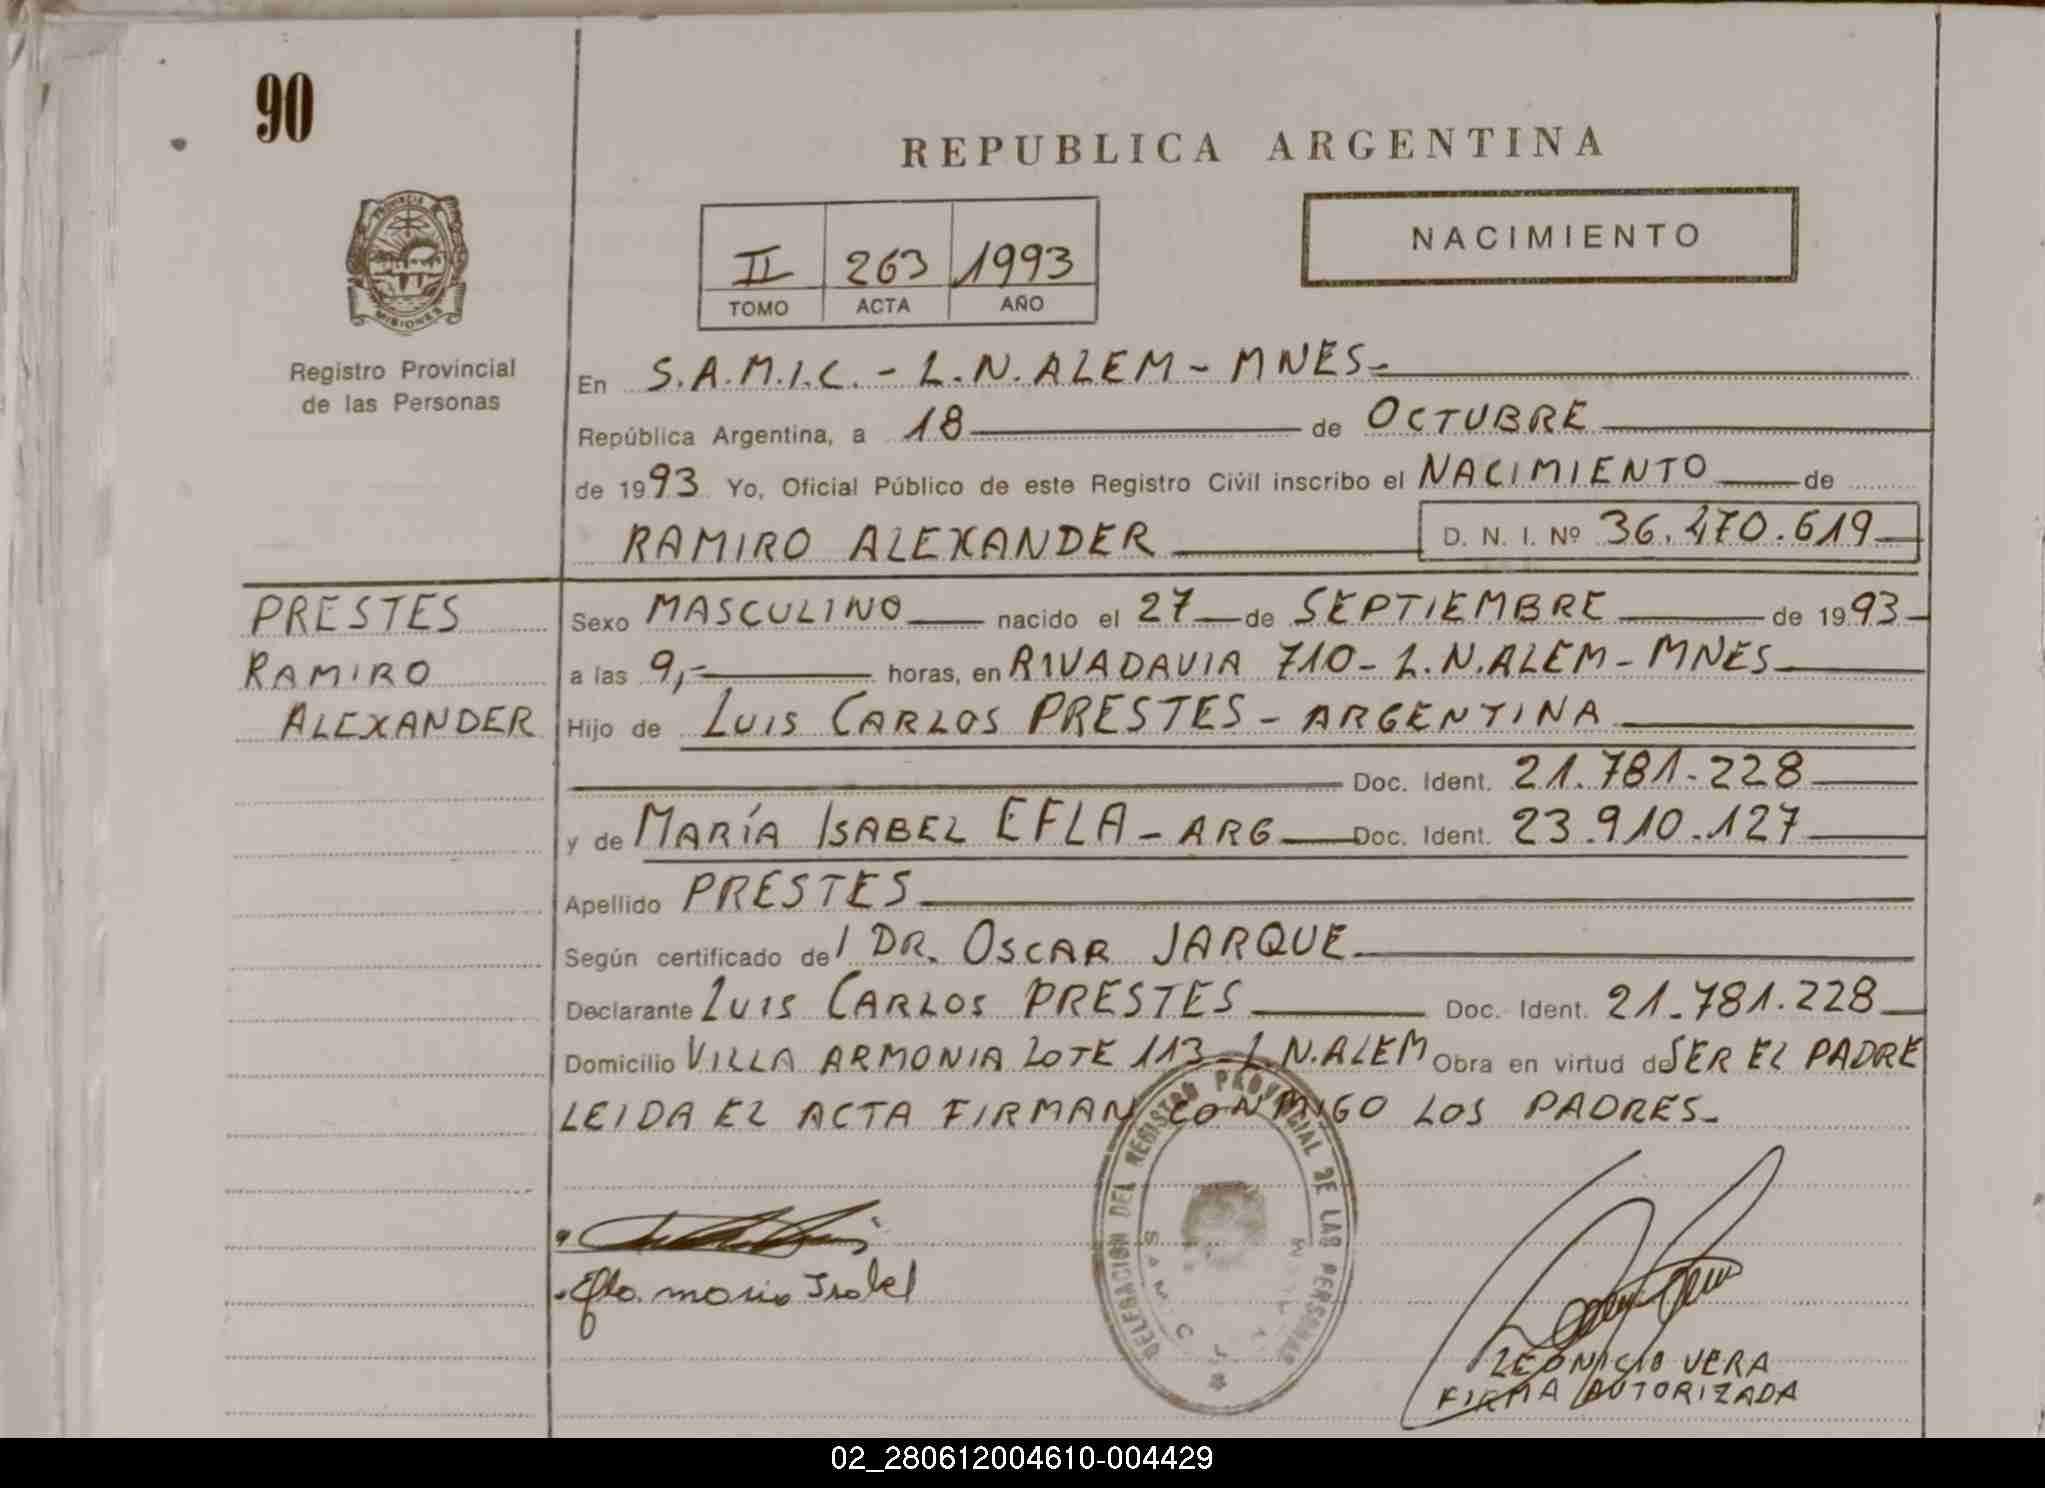 90
REPUBLICA ARGENTINA
PROVINCIA DE
MISIONES
Registro Provincial
de las Personas
II 263 1993
TOMO ACTA AÑO
NACIMIENTO
En S.A.M.I.C. - L.N. ALEM - MNES-
República Argentina, a 18 de OCTUBRE
de 1993 Yo, Oficial Público de este Registro Civil inscribo el NACIMIENTO de
RAMIRO ALEXANDER D. N. I. Nº 36.470.619
PRESTES
RAMIRO
ALEXANDER
Sexo MASCULINO nacido el 27 de SEPTIEMBRE de 1993
a las 9,- horas, en RIVADAVIA 710 - L.N. ALEM - MNES
Hijo de LUIS CARLOS PRESTES - ARGENTINA
Doc. Ident. 21.781.228
y de MARÍA ISABEL EFLA - ARG Doc. Ident. 23.910.127
Apellido PRESTES
Según certificado del DR. OSCAR JARQUE
Declarante LUIS CARLOS PRESTES Doc. Ident. 21.781.228
Domicilio VILLA ARMONIA LOTE 113 - L N. ALEM Obra en virtud de SER EL PADRE
LEIDA EL ACTA FIRMAN CONMIGO LOS PADRES-
DELEGACION DEL REGISTRO PROVINCIAL DE LAS PERSONAS
S A M I C
Efla. maria Isabel
LEONICIO VERA
FIRMA AUTORIZADA
02_280612004610-004429